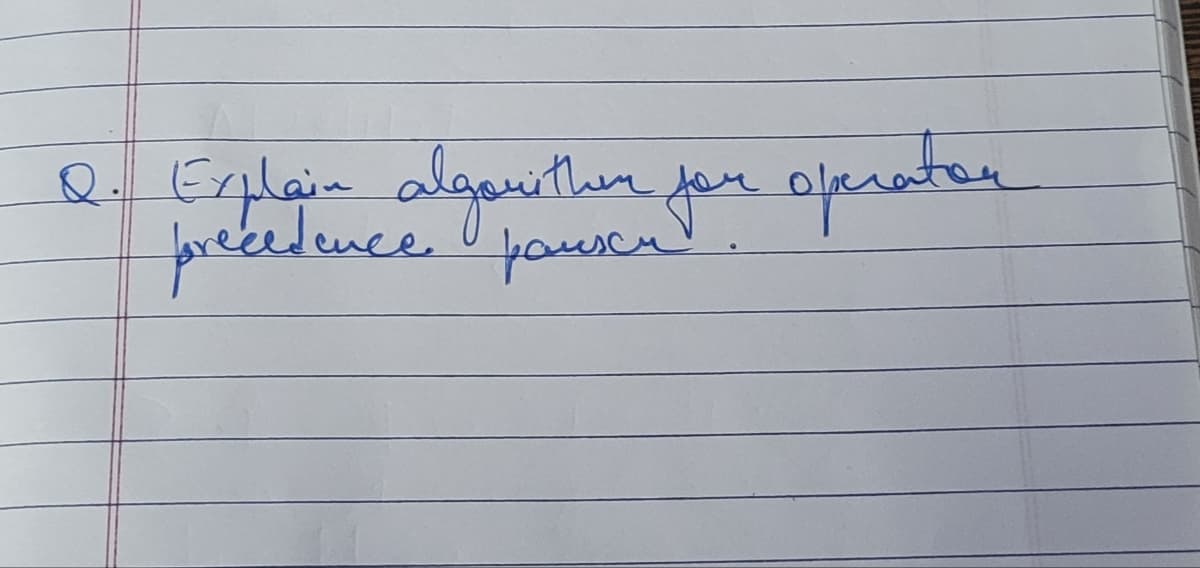 Q. Explain algorithm for operator
precedence parser.